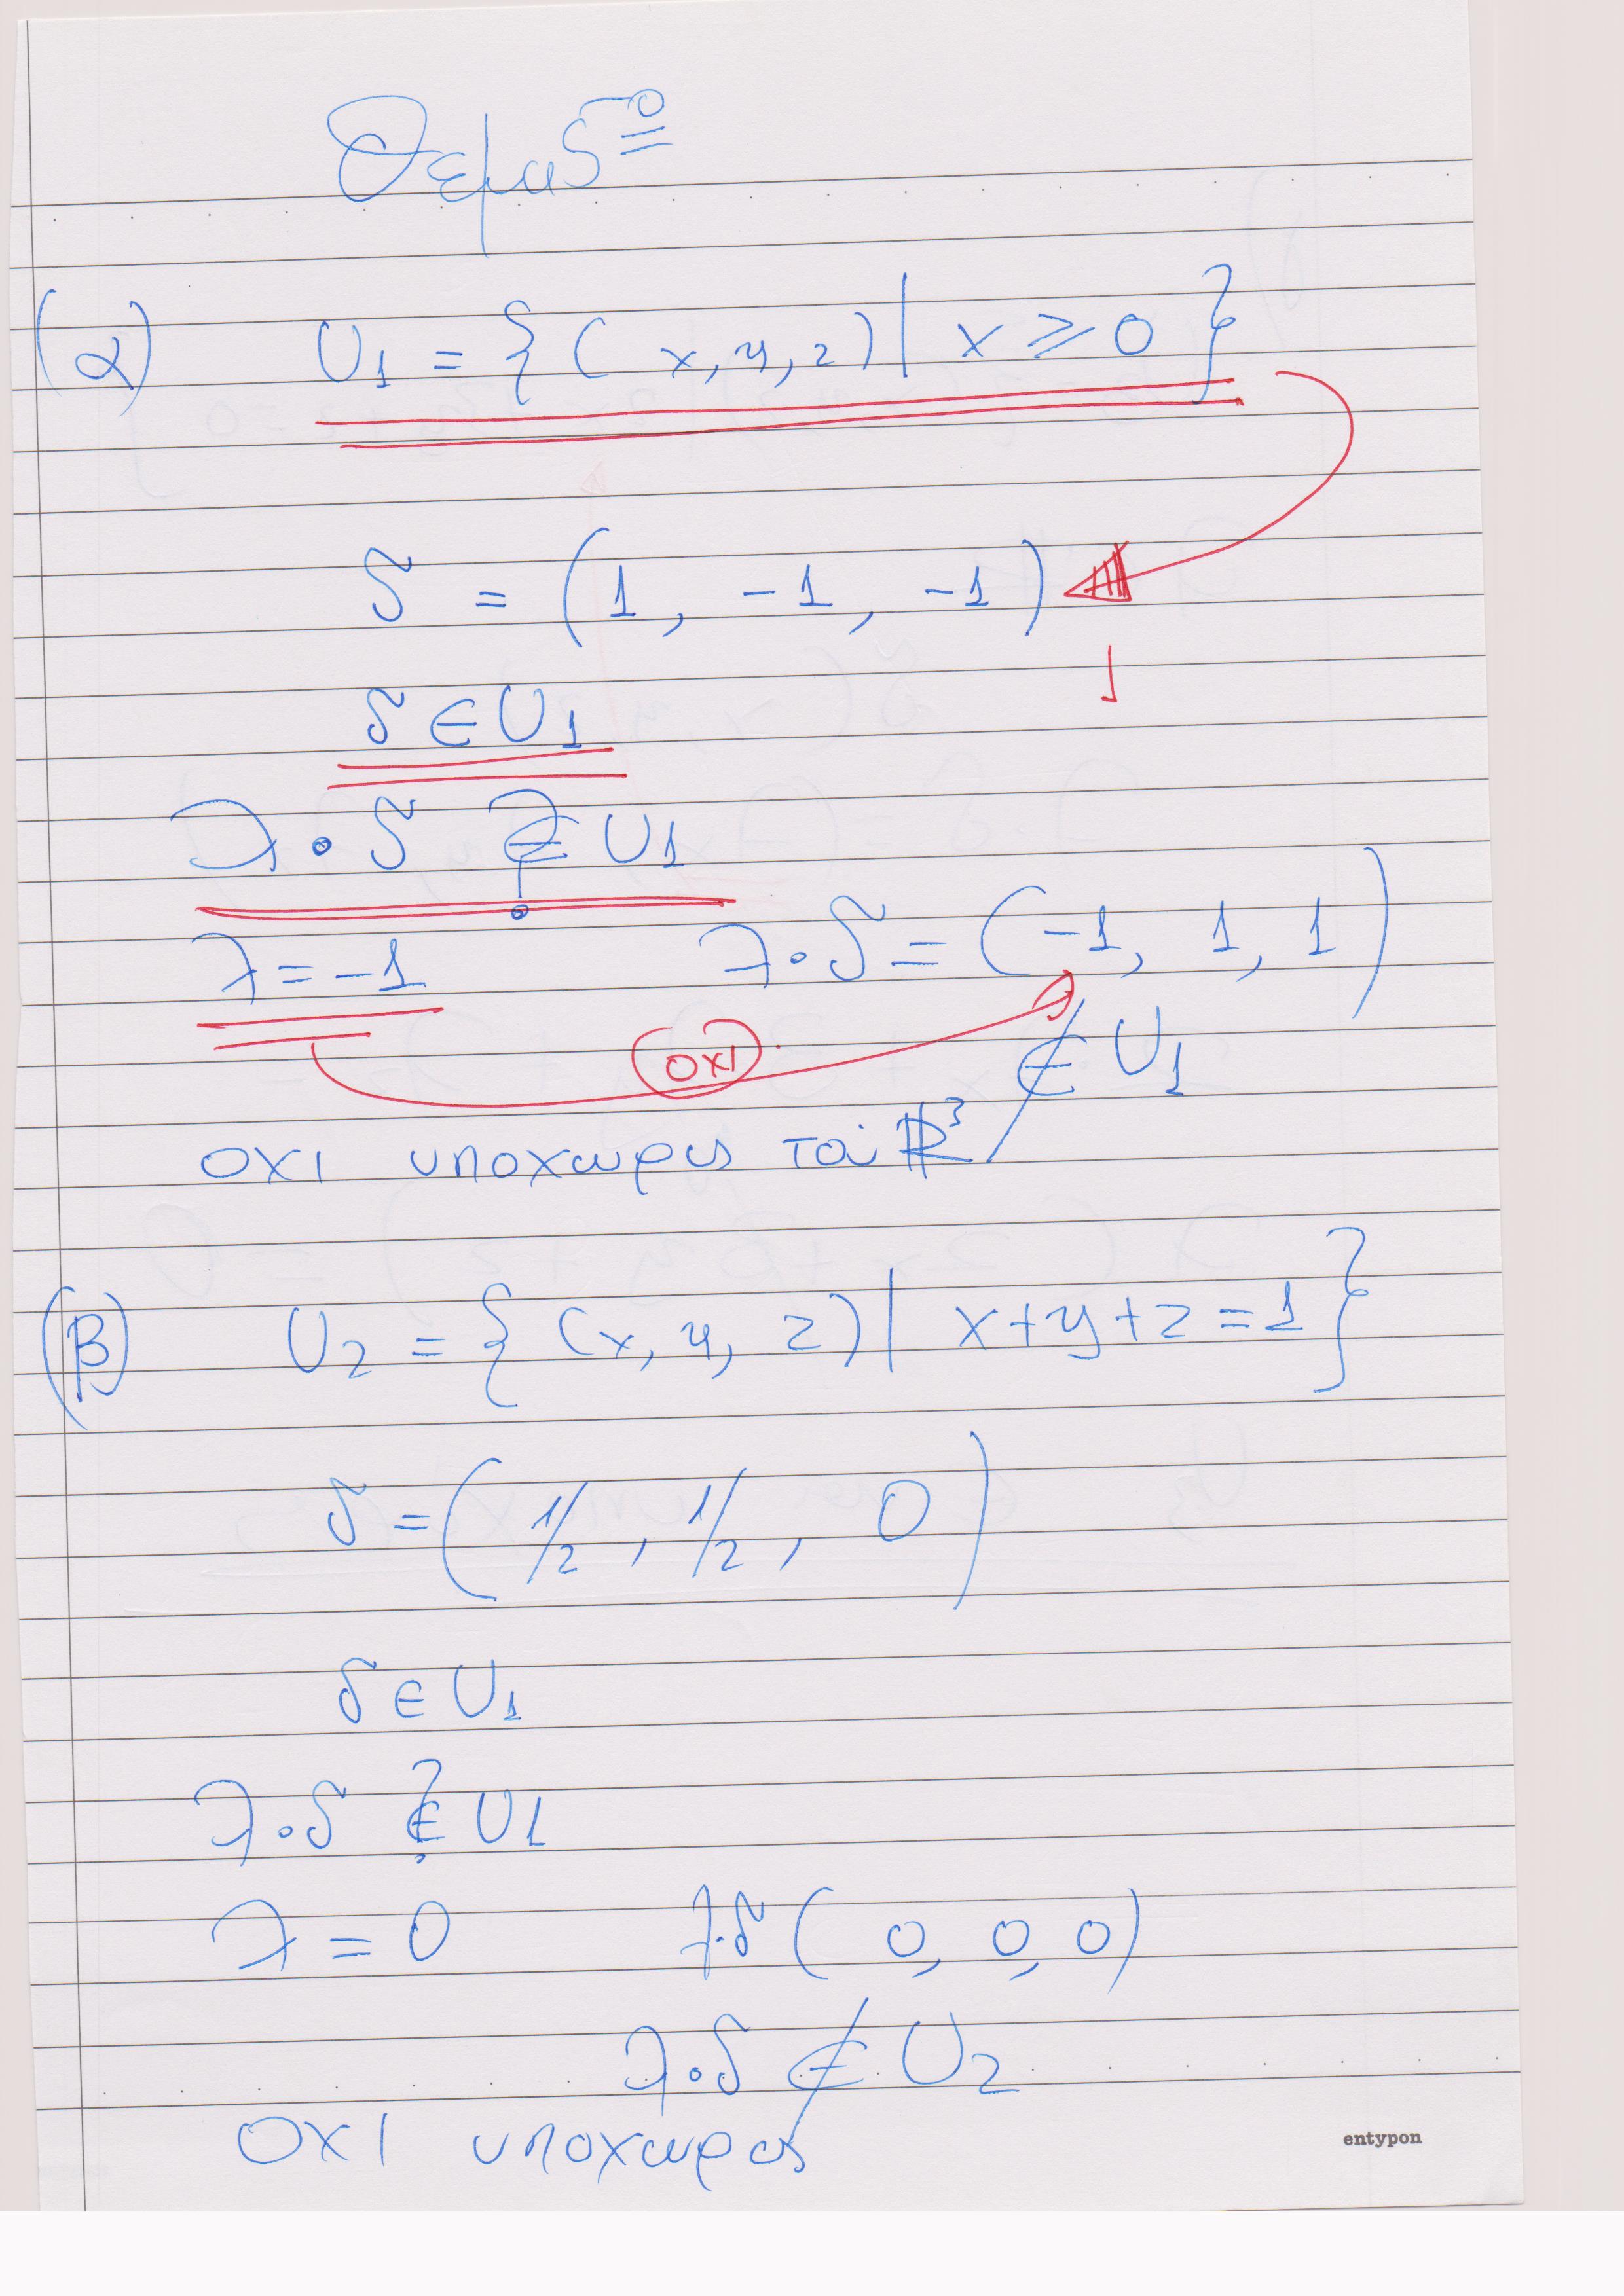 Θεμα 5ο
(α) U1 = { (x, y, z) | x ⩾ 0 }
δ = (1, -1, -1)
δ ∈ U1
λ • δ ∈? U1
λ = -1 λ • δ = (-1, 1, 1)
οχι ∉ U1
οχι υποχωρος του ℝ³
(β) U2 = { (x, y, z) | x+y+z=1 }
δ = (1/2, 1/2, 0)
δ ∈ U1
λ • δ ∈? U1
λ = 0 λ•δ (0, 0, 0)
λ • δ ∉ U2
οχι υποχωρος
entypon